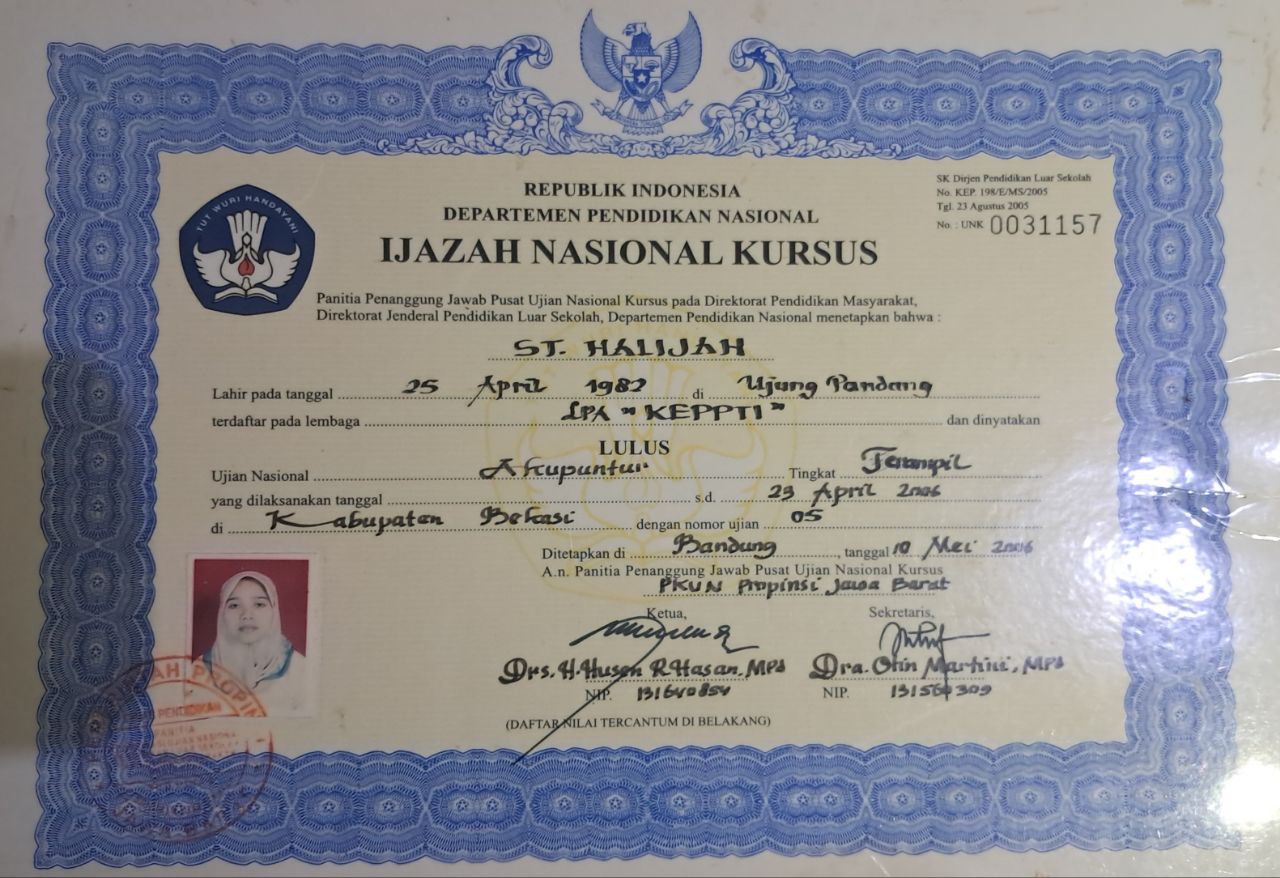 REPUBLIK INDONESIA
DEPARTEMEN PENDIDIKAN NASIONAL
IJAZAH NASIONAL KURSUS
SK Dirjen Pendidikan Luar Sekolah
No. KEP. 198/E/MS/2005
Tgl. 23 Agustus 2005
No. : UNK 0031157
TUT WURI HANDAYANI
Panitia Penanggung Jawab Pusat Ujian Nasional Kursus pada Direktorat Pendidikan Masyarakat,
Direktorat Jenderal Pendidikan Luar Sekolah, Departemen Pendidikan Nasional menetapkan bahwa :
ST. HALIJAH
Lahir pada tanggal 25 April 1982 di Ujung Pandang
terdaftar pada lembaga LPA "KEPPTI" dan dinyatakan
LULUS
Ujian Nasional Akupuntur Tingkat Terampil
yang dilaksanakan tanggal s.d. 23 April 2006
di Kabupaten Bekasi dengan nomor ujian 05
Ditetapkan di Bandung, tanggal 10 Mei 2006
A.n. Panitia Penanggung Jawab Pusat Ujian Nasional Kursus
PKUN Propinsi Jawa Barat
Ketua, Sekretaris,
Drs. H. Husen R. Hasan, MPd Dra. Otin Martini, MPd
NIP. 131640854 NIP. 131564309
(DAFTAR NILAI TERCANTUM DI BELAKANG)
PENDIDIKAN
PANITIA